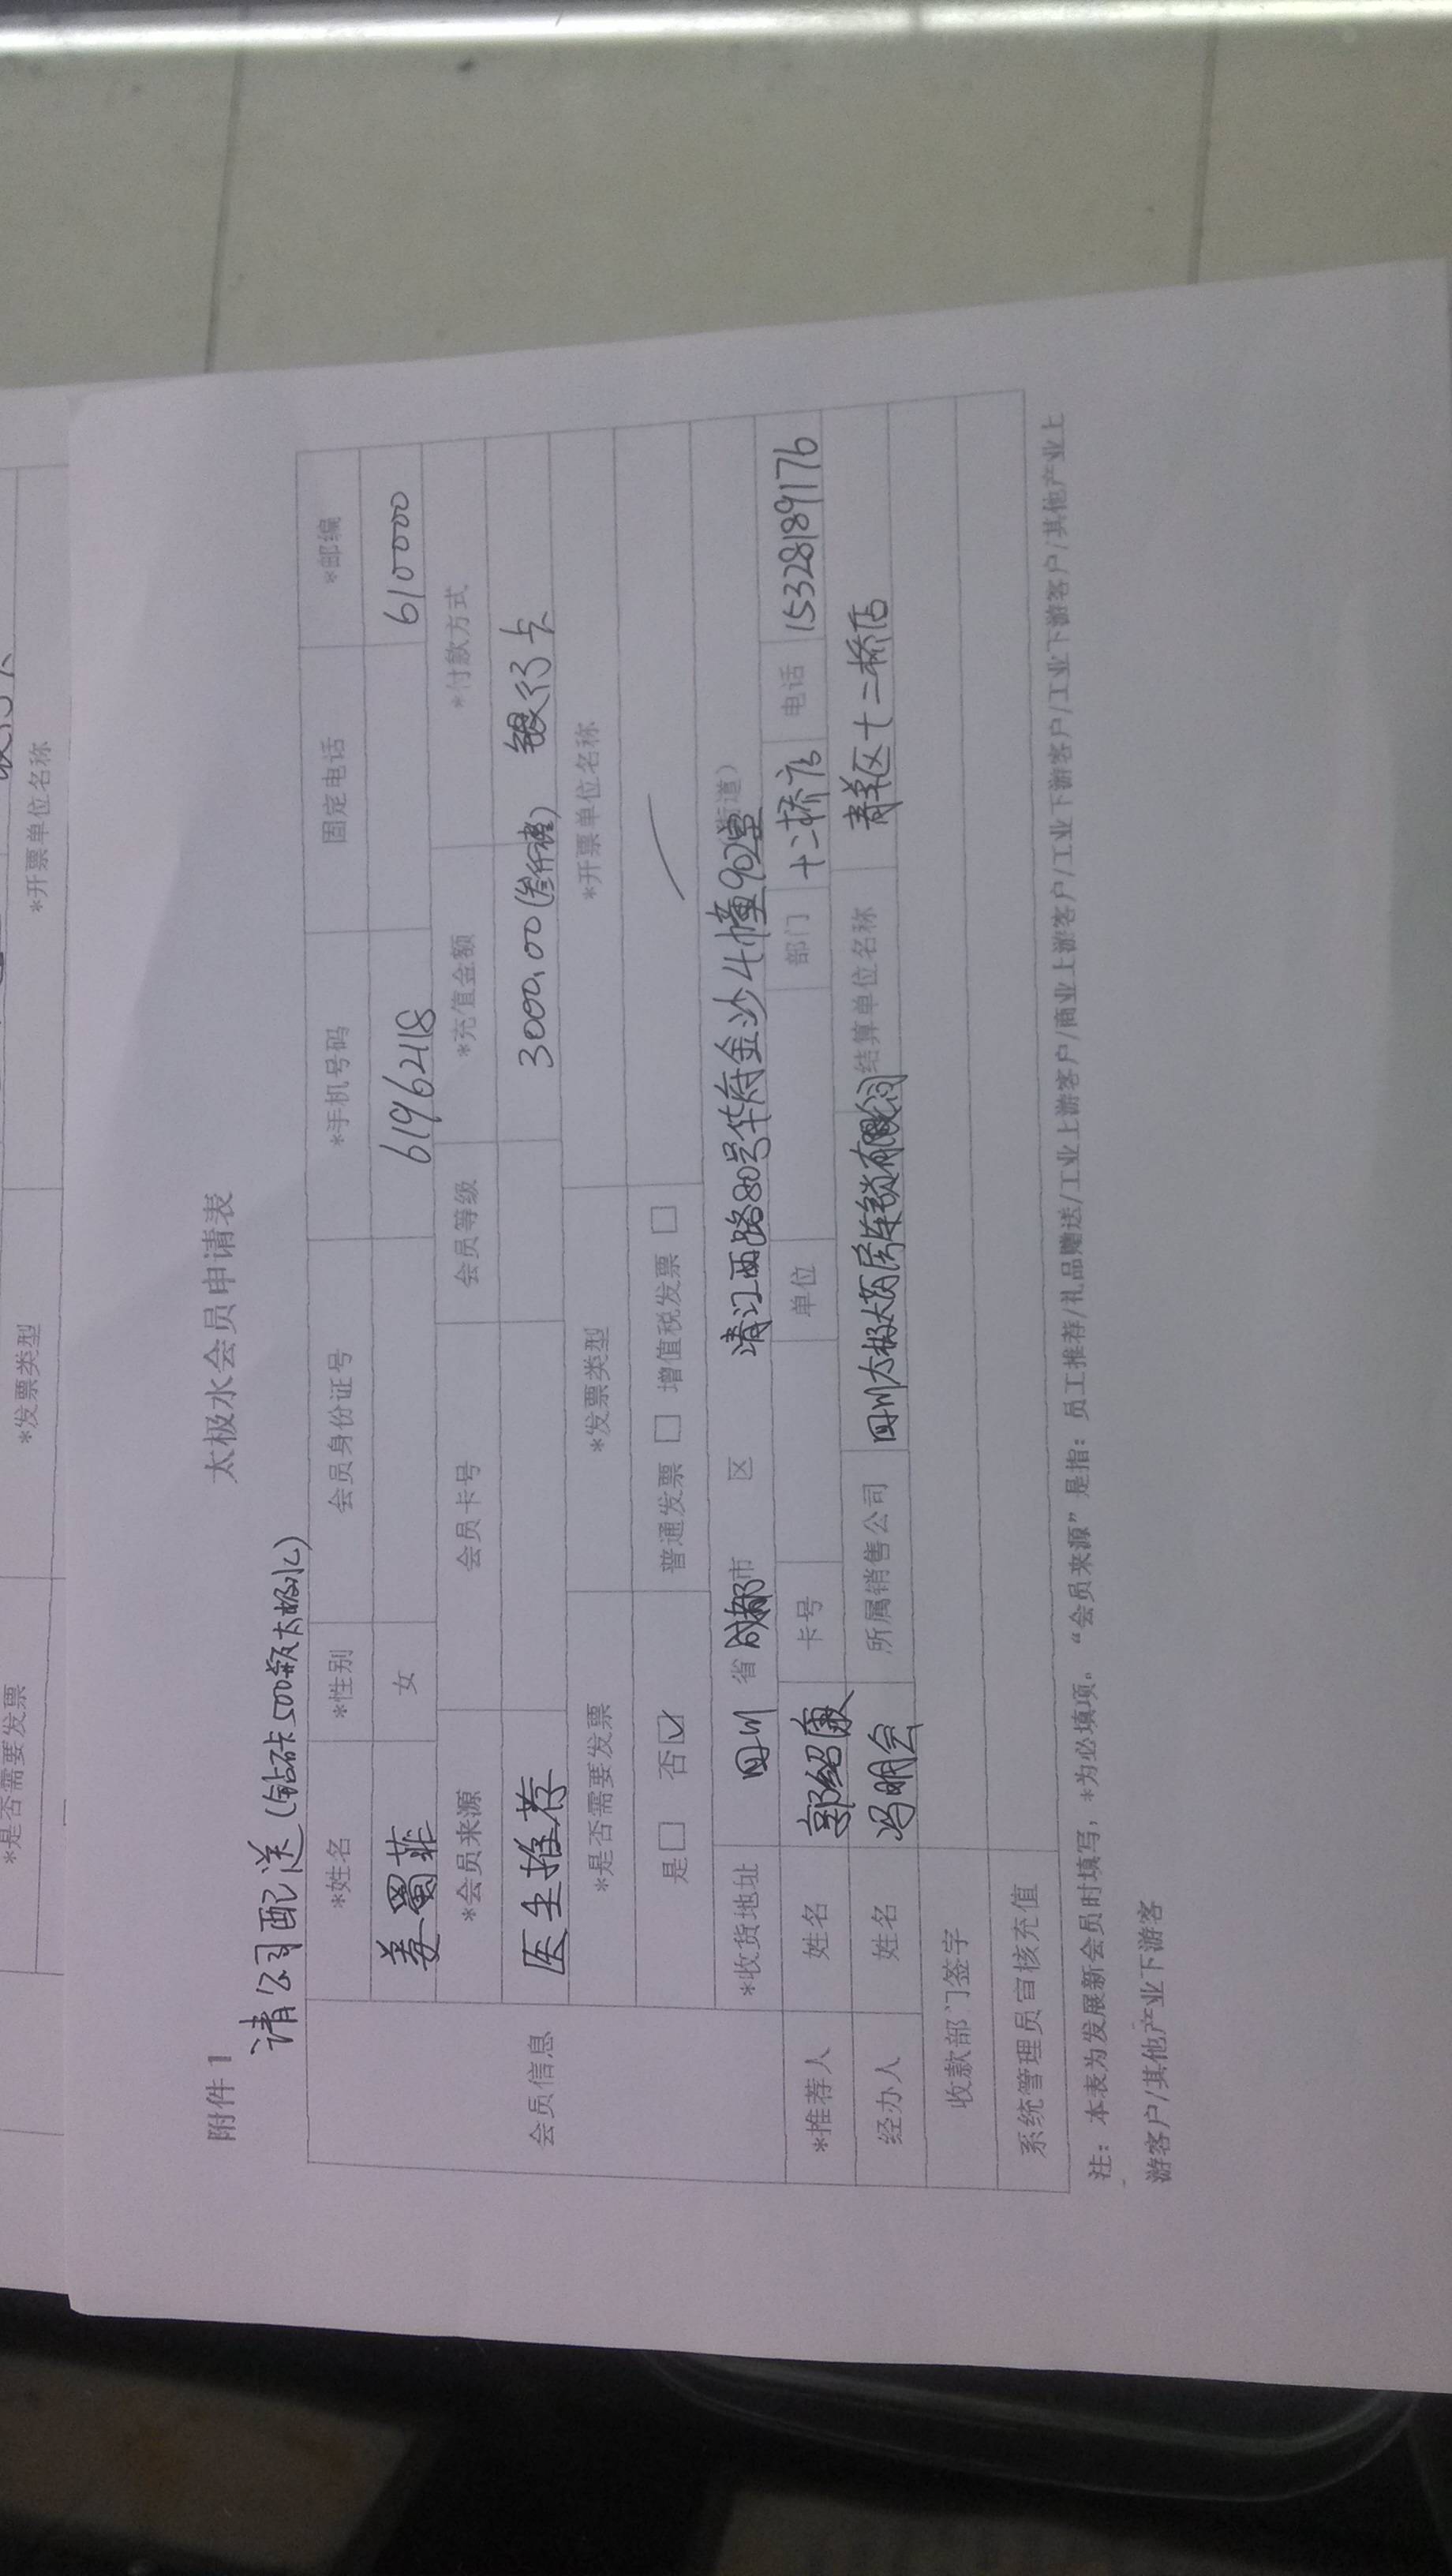 *是否需要发票 *发票类型 *开票单位名称
附件1
太极水会员申请表
请公司配送(钻石卡500瓶太极水)
会员信息
*姓名 *性别 会员身份证号 *手机号码 固定电话 *邮编
姜蜀菲 女 61962118 610000
*会员来源 会员卡号 会员等级 *充值金额 *付款方式
医生推荐 3000.00(叁仟 银行卡
*是否需要发票 *发票类型 *开票单位名称
是□ 否☑ 普通发票 □ 增值税发票 □
*收货地址 四川 省 成都市 区 清江西路80号华府金沙4幢902室 街道)
*推荐人 姓名 郭绍康 卡号 单位 部门 十二桥店 电话 15328189176
经办人 姓名 冯明会 所属销售公司 四川太极大药房连锁有限公司 结算单位名称 青羊区十二桥店
收款部门签字
系统管理员审核充值
注：本表为发展新会员时填写，*为必填项。“会员来源”是指：员工推荐/礼品赠送/工业上游客户/商业上游客户/工业下游客户/工业下游客户/工业下游客户/其他产业上
游客户/其他产业下游客